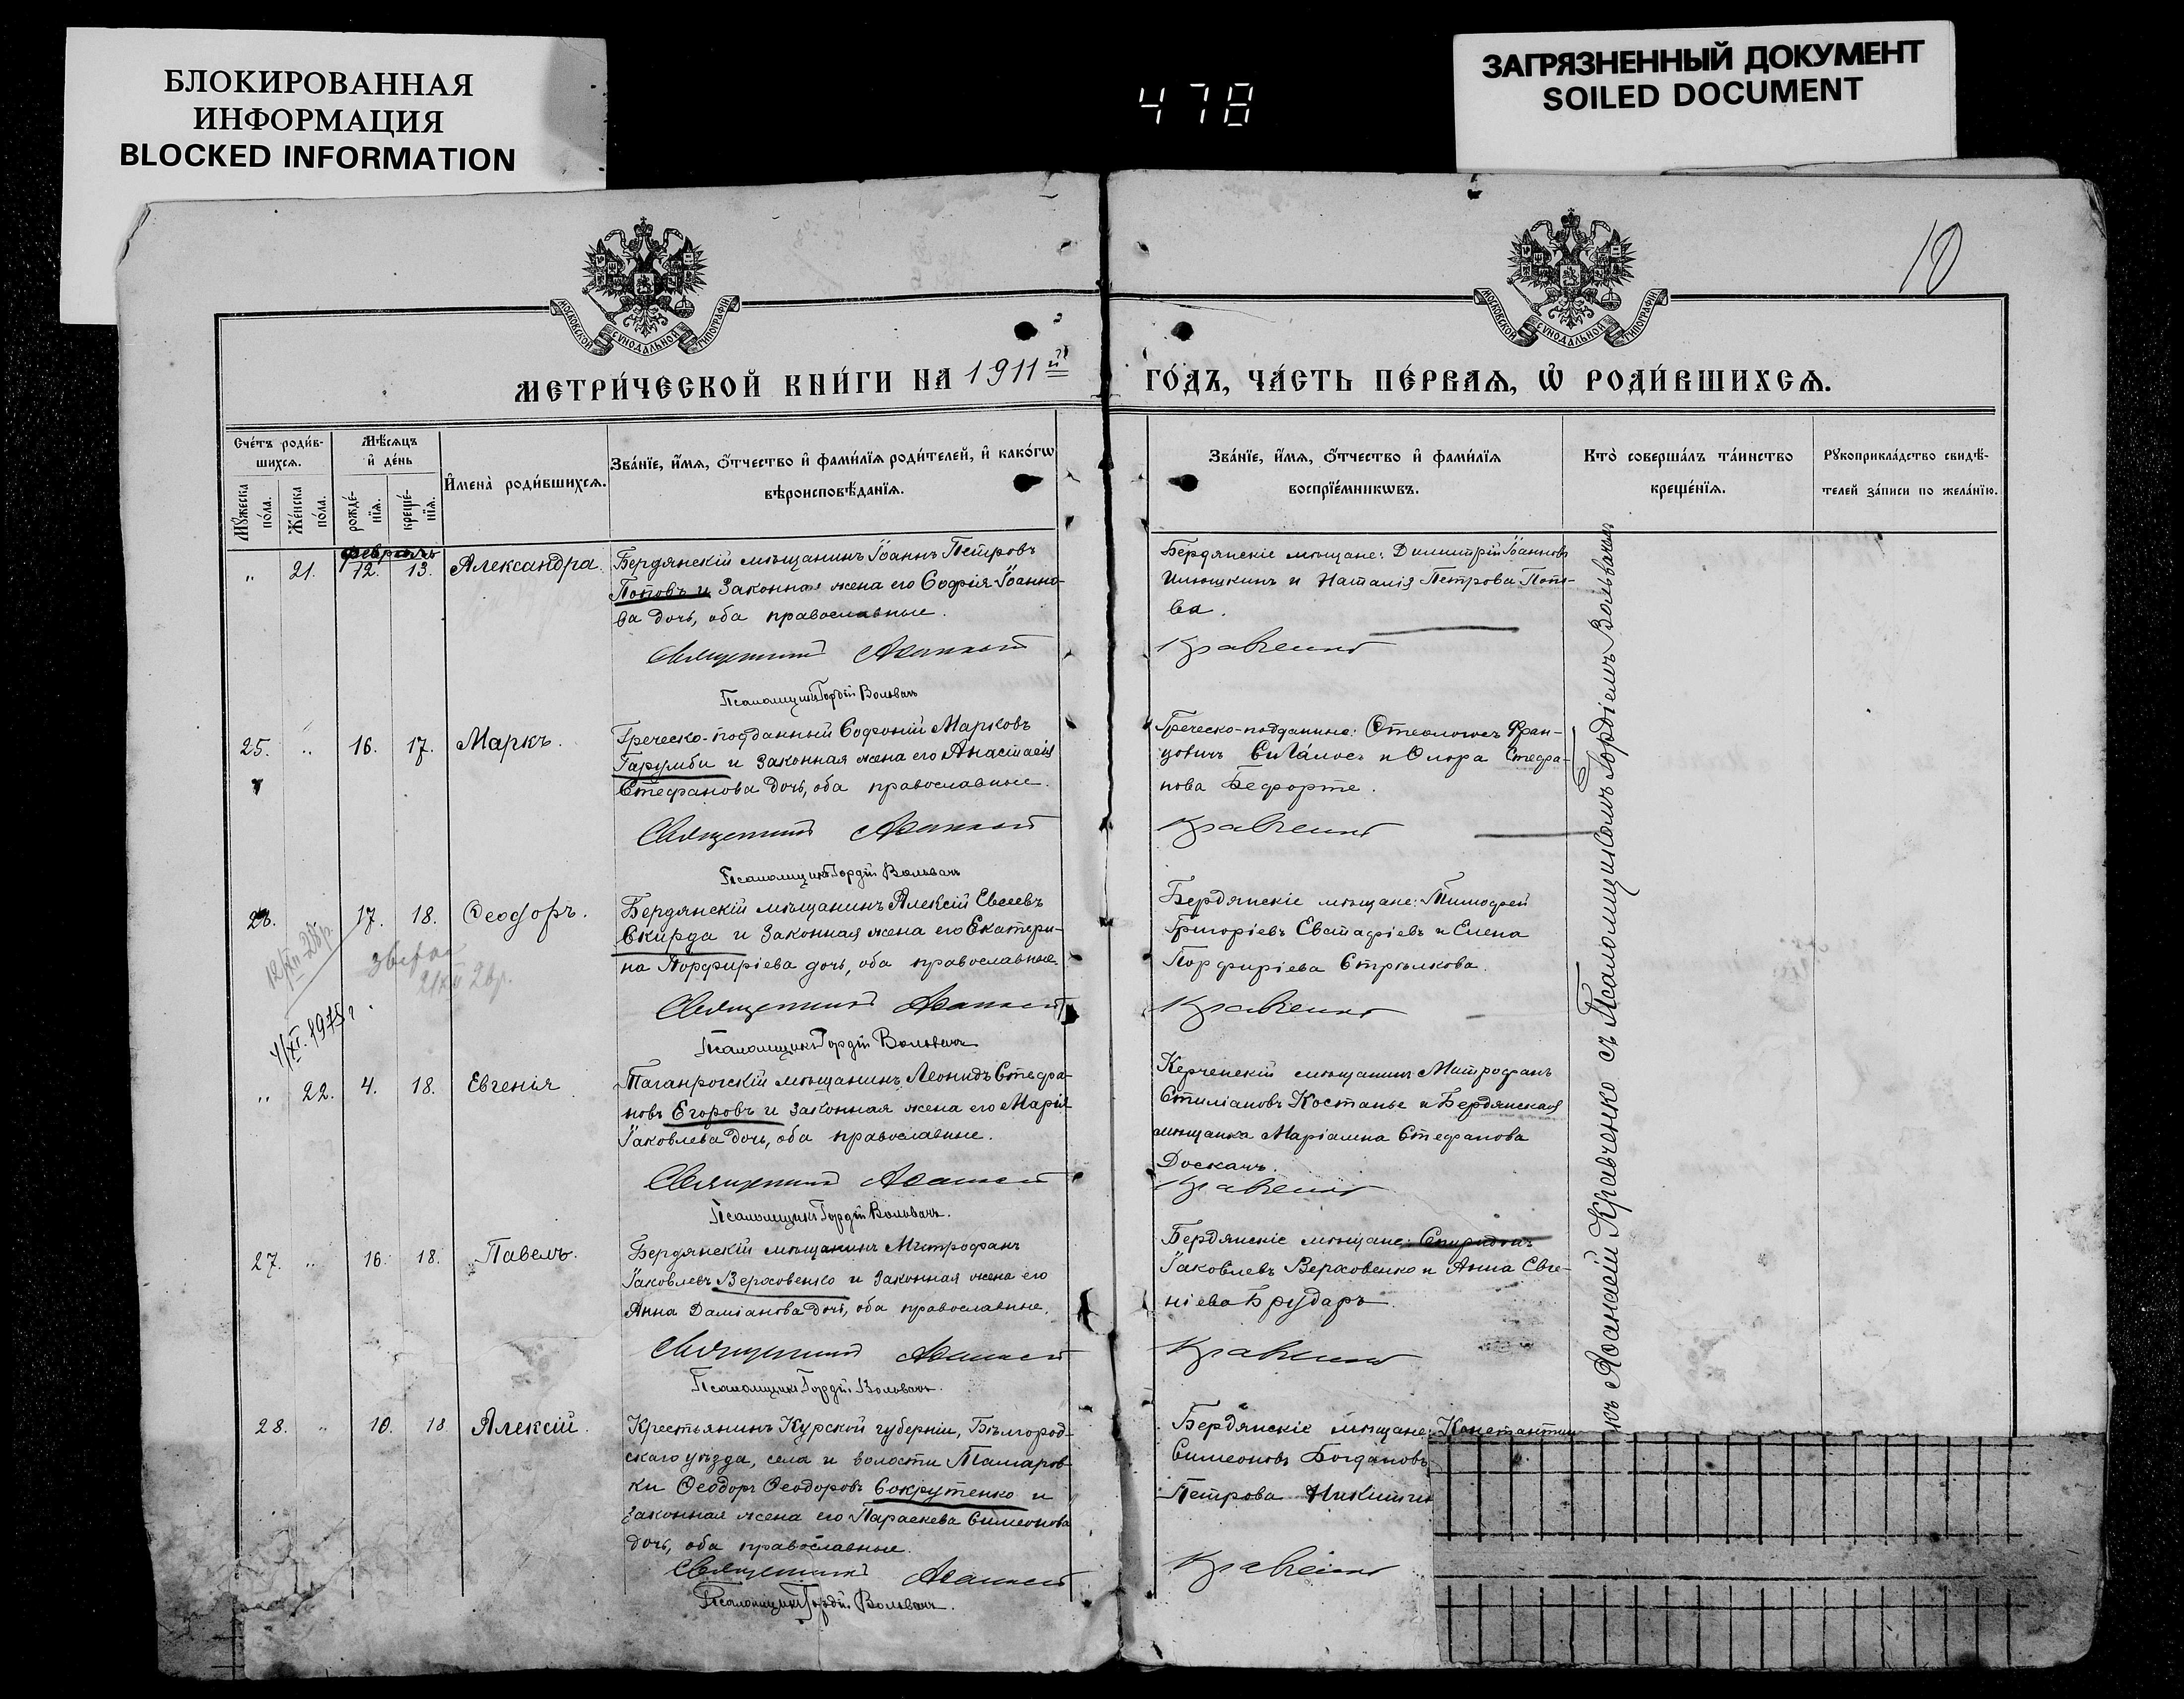 БЛОКИРОВАННАЯ
ИНФОРМАЦИЯ
BLOCKED INFORMATION
478
ЗАГРЯЗНЕННЫЙ ДОКУМЕНТ
SOILED DOCUMENT
10
МОСКОВСКОЙ СѴНОДАЛЬНОЙ ТИПОГРАФІИ
МОСКОВСКОЙ СѴНОДАЛЬНОЙ ТИПОГРАФІИ
МЕТРИ́ЧЕСКОЙ КНИ́ГИ НА 1911й
ГО́ДЪ, ЧА́СТЬ ПЕ́РВАѦ, Ѽ РОДИ́ВШИХСѦ.
Сче́тъ роди́в-
шихсѧ.
Мѣ́сѧцъ
и҆ де́нь
Мꙋ́жеска
по́ла.
Же́нска
по́ла.
рожде́-
нїѧ.
креще́-
нїѧ.
И҆мена̀ роди́вшихсѧ.
Зва́нїе, и҆́мѧ, ѻ҆́тчество и҆ фами́лїѧ роди́телей, и҆ како́гѡ
вѣроисповѣ́данїѧ.
Зва́нїе, и҆́мѧ, ѻ҆́тчество и҆ фами́лїѧ
воспрїе́мникѡвъ.
Кто̀ соверша́лъ та́инство
креще́нїѧ.
Рꙋкоприкла́дство свидѣ́-
телей за́писи по жела́нїю.
Февраль
„ 21. 12. 13. Александра.
Бердянскій мѣщанинъ Іоаннъ Петровъ
Поповъ и законная жена его Софія Іоанно-
ва дочь, оба православные.
Священникъ Аѳанасій
Псаломщикъ Гордій Вольвачъ
Бердянскіе мѣщане: Димитрій Іоанновъ
Илюшкинъ и Наталія Петрова Попо-
ва.
Кравченко
25. „ 16. 17. Маркъ.
Греческо-подданный Софоній Марковъ
Гарумби и законная жена его Анастасія
Стефанова дочь, оба православные.
Священникъ Аѳанасій
Псаломщикъ Гордій Вольвачъ
Греческо-подданные: Фран-
цовичъ и Стефа-
нова Бефорте.
Кравченко
26. 17. 18. Ѳеодоръ.
Бердянскій мѣщанинъ Алексій Евсеевъ
Скирда и законная жена его Екатери-
на Порфиріева дочь, оба православные.
Священникъ Аѳанасій
Псаломщикъ Гордій Вольвачъ
Бердянскіе мѣщане: Тимофей
Григоріевъ Евстафіевъ и Елена
Порфиріева Стрѣлкова.
Кравченко
4/XI. 1975г.
„ 22. 4. 18. Евгенія
Таганрогскій мѣщанинъ Леонидъ Стефа-
новъ Егоровъ и законная жена его Марія
Іаковлева дочь, оба православные.
Священникъ Аѳанасій
Псаломщикъ Гордій Вольвачъ.
Керченскій мѣщанинъ Митрофанъ
Стиліановъ Костанье и Бердянская
мѣщанка Маріамна Стефанова
Доскачъ.
Кравченко
27. „ 16. 18. Павелъ.
Бердянскій мѣщанинъ Митрофанъ
Іаковлевъ Верховенко и законная жена его
Анна Даміанова дочь, оба православные.
Священникъ Аѳанасій
Псаломщикъ Гордій Вольвачъ.
Бердянскіе мѣщане: Спиридонъ
Іаковлевъ Верховенко и Анна Евге-
ніева Брударъ.
Кравченко
28. „ 10. 18 Алексій.
Крестьянинъ Курской губерніи, Бѣлгород-
скаго уѣзда, села и волости Тамаров-
ки Ѳеодоръ Ѳеодоровъ Сокрутенко и
законная жена его Параскева Симеонова
дочь, оба православные.
Священникъ Аѳанасій
Псаломщикъ Гордій Вольвачъ.
Бердянскіе мѣщане: Константин
Симеоновъ Богдановъ
Петрова
Кравченко
къ Аѳанасій Кравченко съ Псаломщикомъ Гордіемъ Вольвачемъ